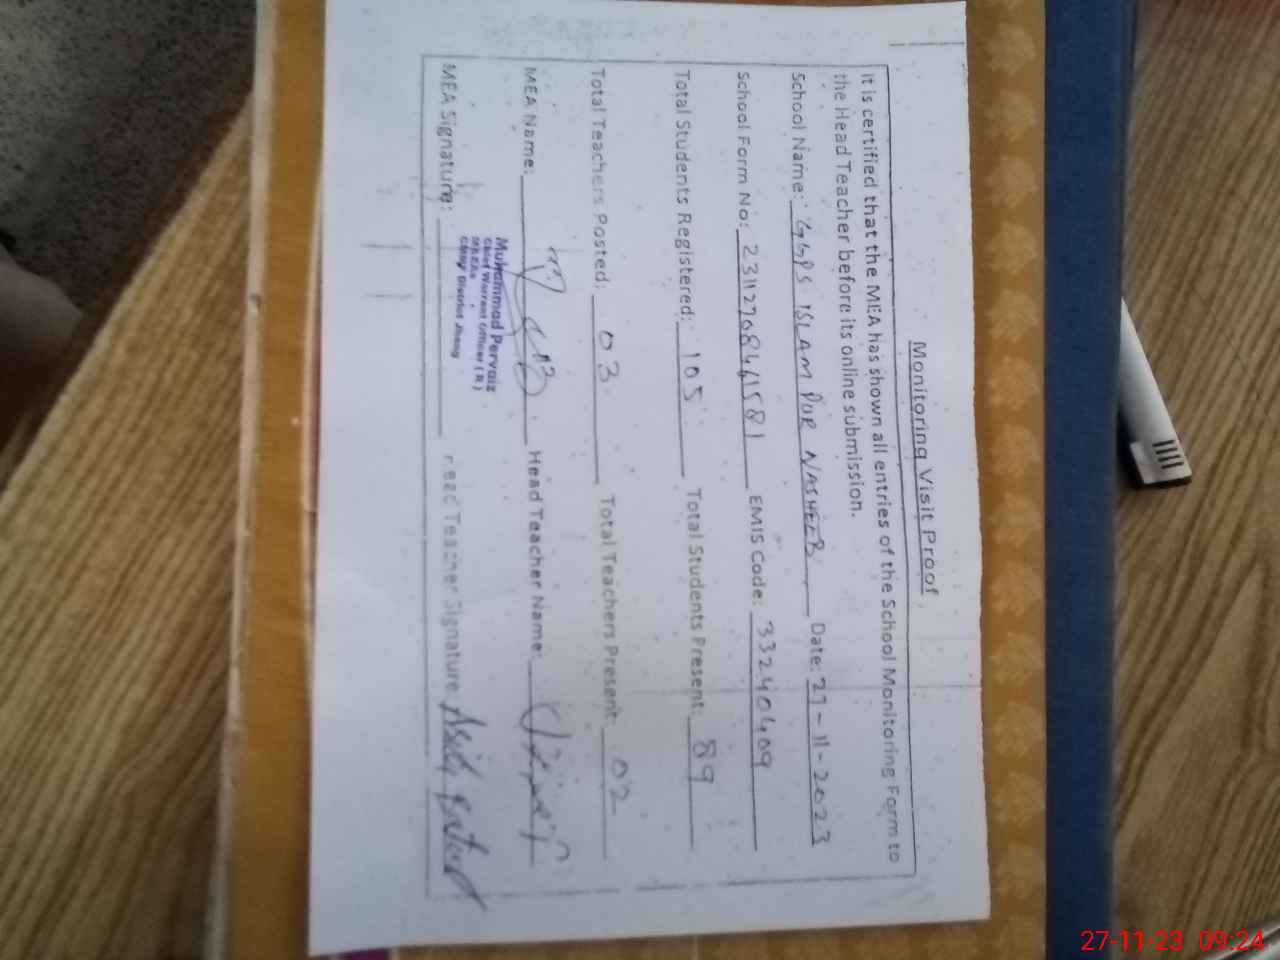 Monitoring Visit Proof
It is certified that the MEA has shown all entries of the School Monitoring Form to
the Head Teacher before its online submission.
School Name: GGPS ISLAM PUR NASHEEB Date: 27-11-2023
School Form No: EMIS Code: 33240409
Total Students Registered: 105 Total Students Present: 89
Total Teachers Posted: 03 Total Teachers Present: 02
MEA Name: Head Teacher Name:
Muhammad Pervaiz
Chief Warrant Officer (R)
MEA Signature: Head Teacher Signature
District Jhang
27-11-23 09:24